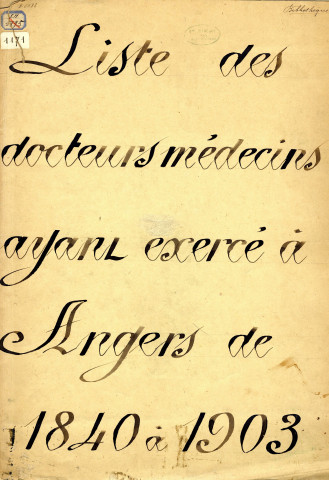 Bibliothèque
1171
Liste des
docteurs médecins
ayant exercé à
Angers de
1840 à 1903